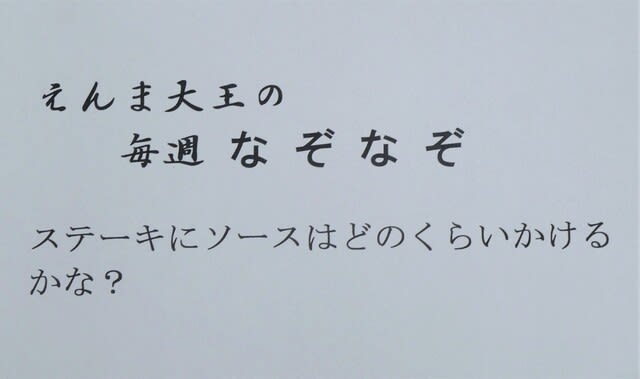 えんま大王の
毎週 なぞなぞ
ステーキにソースはどのくらいかける
かな？